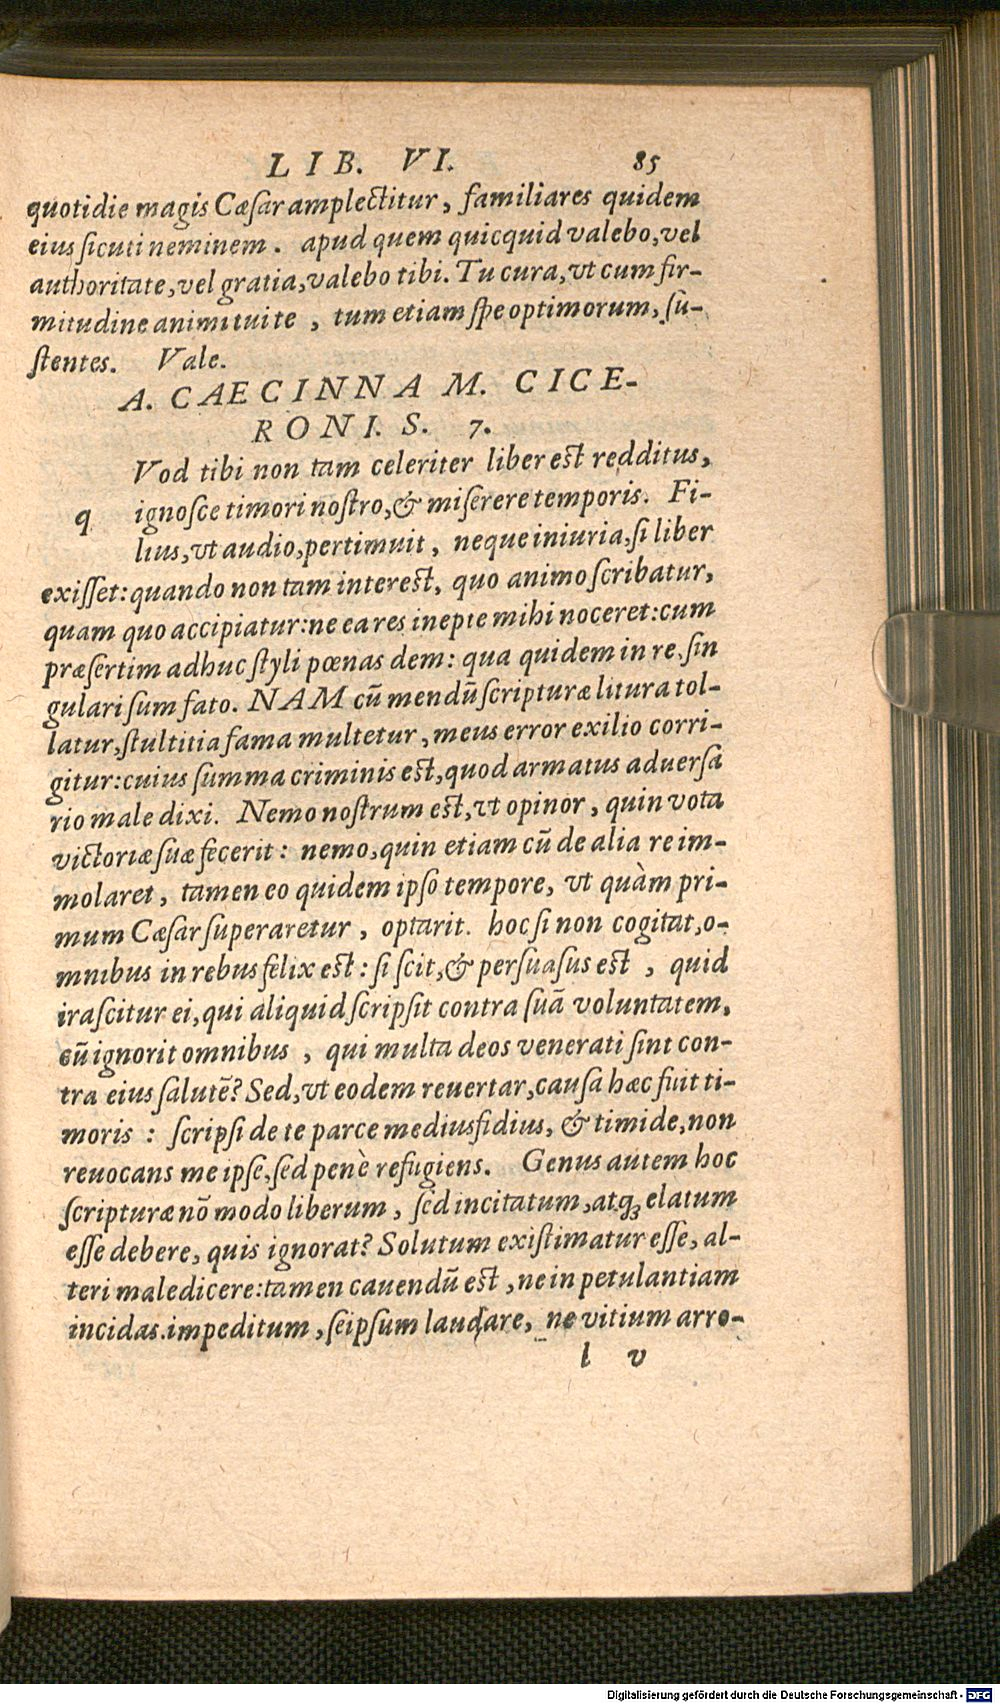 LIB. VI. 85
quotidie magis Cæſar amplectitur, familiares quidem
eius ſicuti neminem. apud quem quicquid valebo, vel
authoritate, vel gratia, valebo tibi. Tu cura, vt cum fir-
mitudine animi tuite, tum etiam ſpe optimorum, ſu-
ſtentes. Vale.
A. CAECINNA M. CICE-
RONI. S. 7.
q Vod tibi non tam celeriter liber est redditus,
ignoſce timori noſtro, & miſerere temporis. Fi-
lius, vt audio, pertimuit, neque iniuria, ſi liber
exiſſet: quando non tam interest, quo animo ſcribatur,
quam quo accipiatur: ne ea res inepte mihi noceret: cum
præſertim adhuc ſtyli pœnas dem: qua quidem in re, ſin
gulari ſum fato. NAM cū mendū ſcripturæ litura tol-
latur, ſtultitia fama multetur, meus error exilio corri-
gitur: cuius ſumma criminis est, quod armatus aduerſa
rio male dixi. Nemo nostrum est, vt opinor, quin vota
victoriæ ſuæ fecerit: nemo, quin etiam cū de alia re im-
molaret, tamen eo quidem ipſo tempore, vt quàm pri-
mum Cæſar ſuperaretur, optarit. hoc ſi non cogitat, o-
mnibus in rebus felix est: ſi ſcit, & perſuaſus est, quid
iraſcitur ei, qui aliquid ſcripſit contra ſuā voluntatem,
cū ignorit omnibus, qui multa deos venerati ſint con-
tra eius ſalutē? Sed, vt eodem reuertar, cauſa hæc fuit ti-
moris: ſcripſi de te parce mediusfidius, & timide, non
reuocans me ipſe, ſed penè refugiens. Genus autem hoc
ſcripturæ nō modo liberum, ſed incitatum, atqꝫ elatum
eſſe debere, quis ignorat? Solutum exiſtimatur eſſe, al-
teri maledicere: tamen cauendū est, ne in petulantiam
incidas. impeditum, ſeipſum laudare, ne vitium arro-
l v
Digitalisierung gefördert durch die Deutsche Forschungsgemeinschaft - DFG